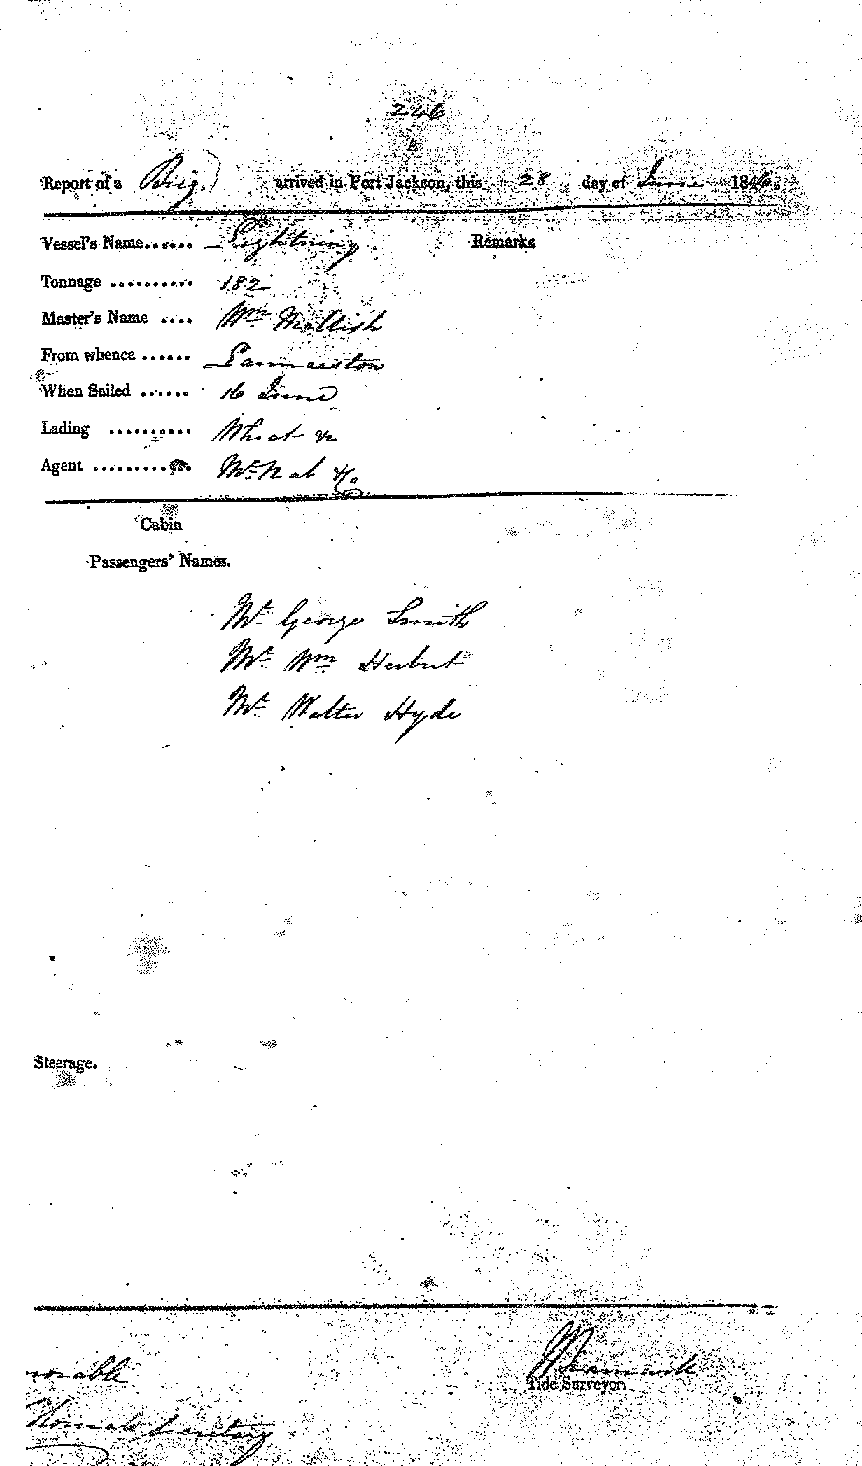 246
Report of a Brig. arrived in Port Jackson, this 28 day of June 1846.
Vessel's Name...... Lightning Remarks
Tonnage .......... 182
Master's Name .... Wm Mellish
From whence ...... Launceston
When Sailed ...... 16 June
Lading .......... Wheat &c
Agent ..........
Cabin
Passengers' Names.
Mr. George Smith
Mr. Wm Herbert
Mr. Walter Hyde
Steerage.
Tide Surveyor.